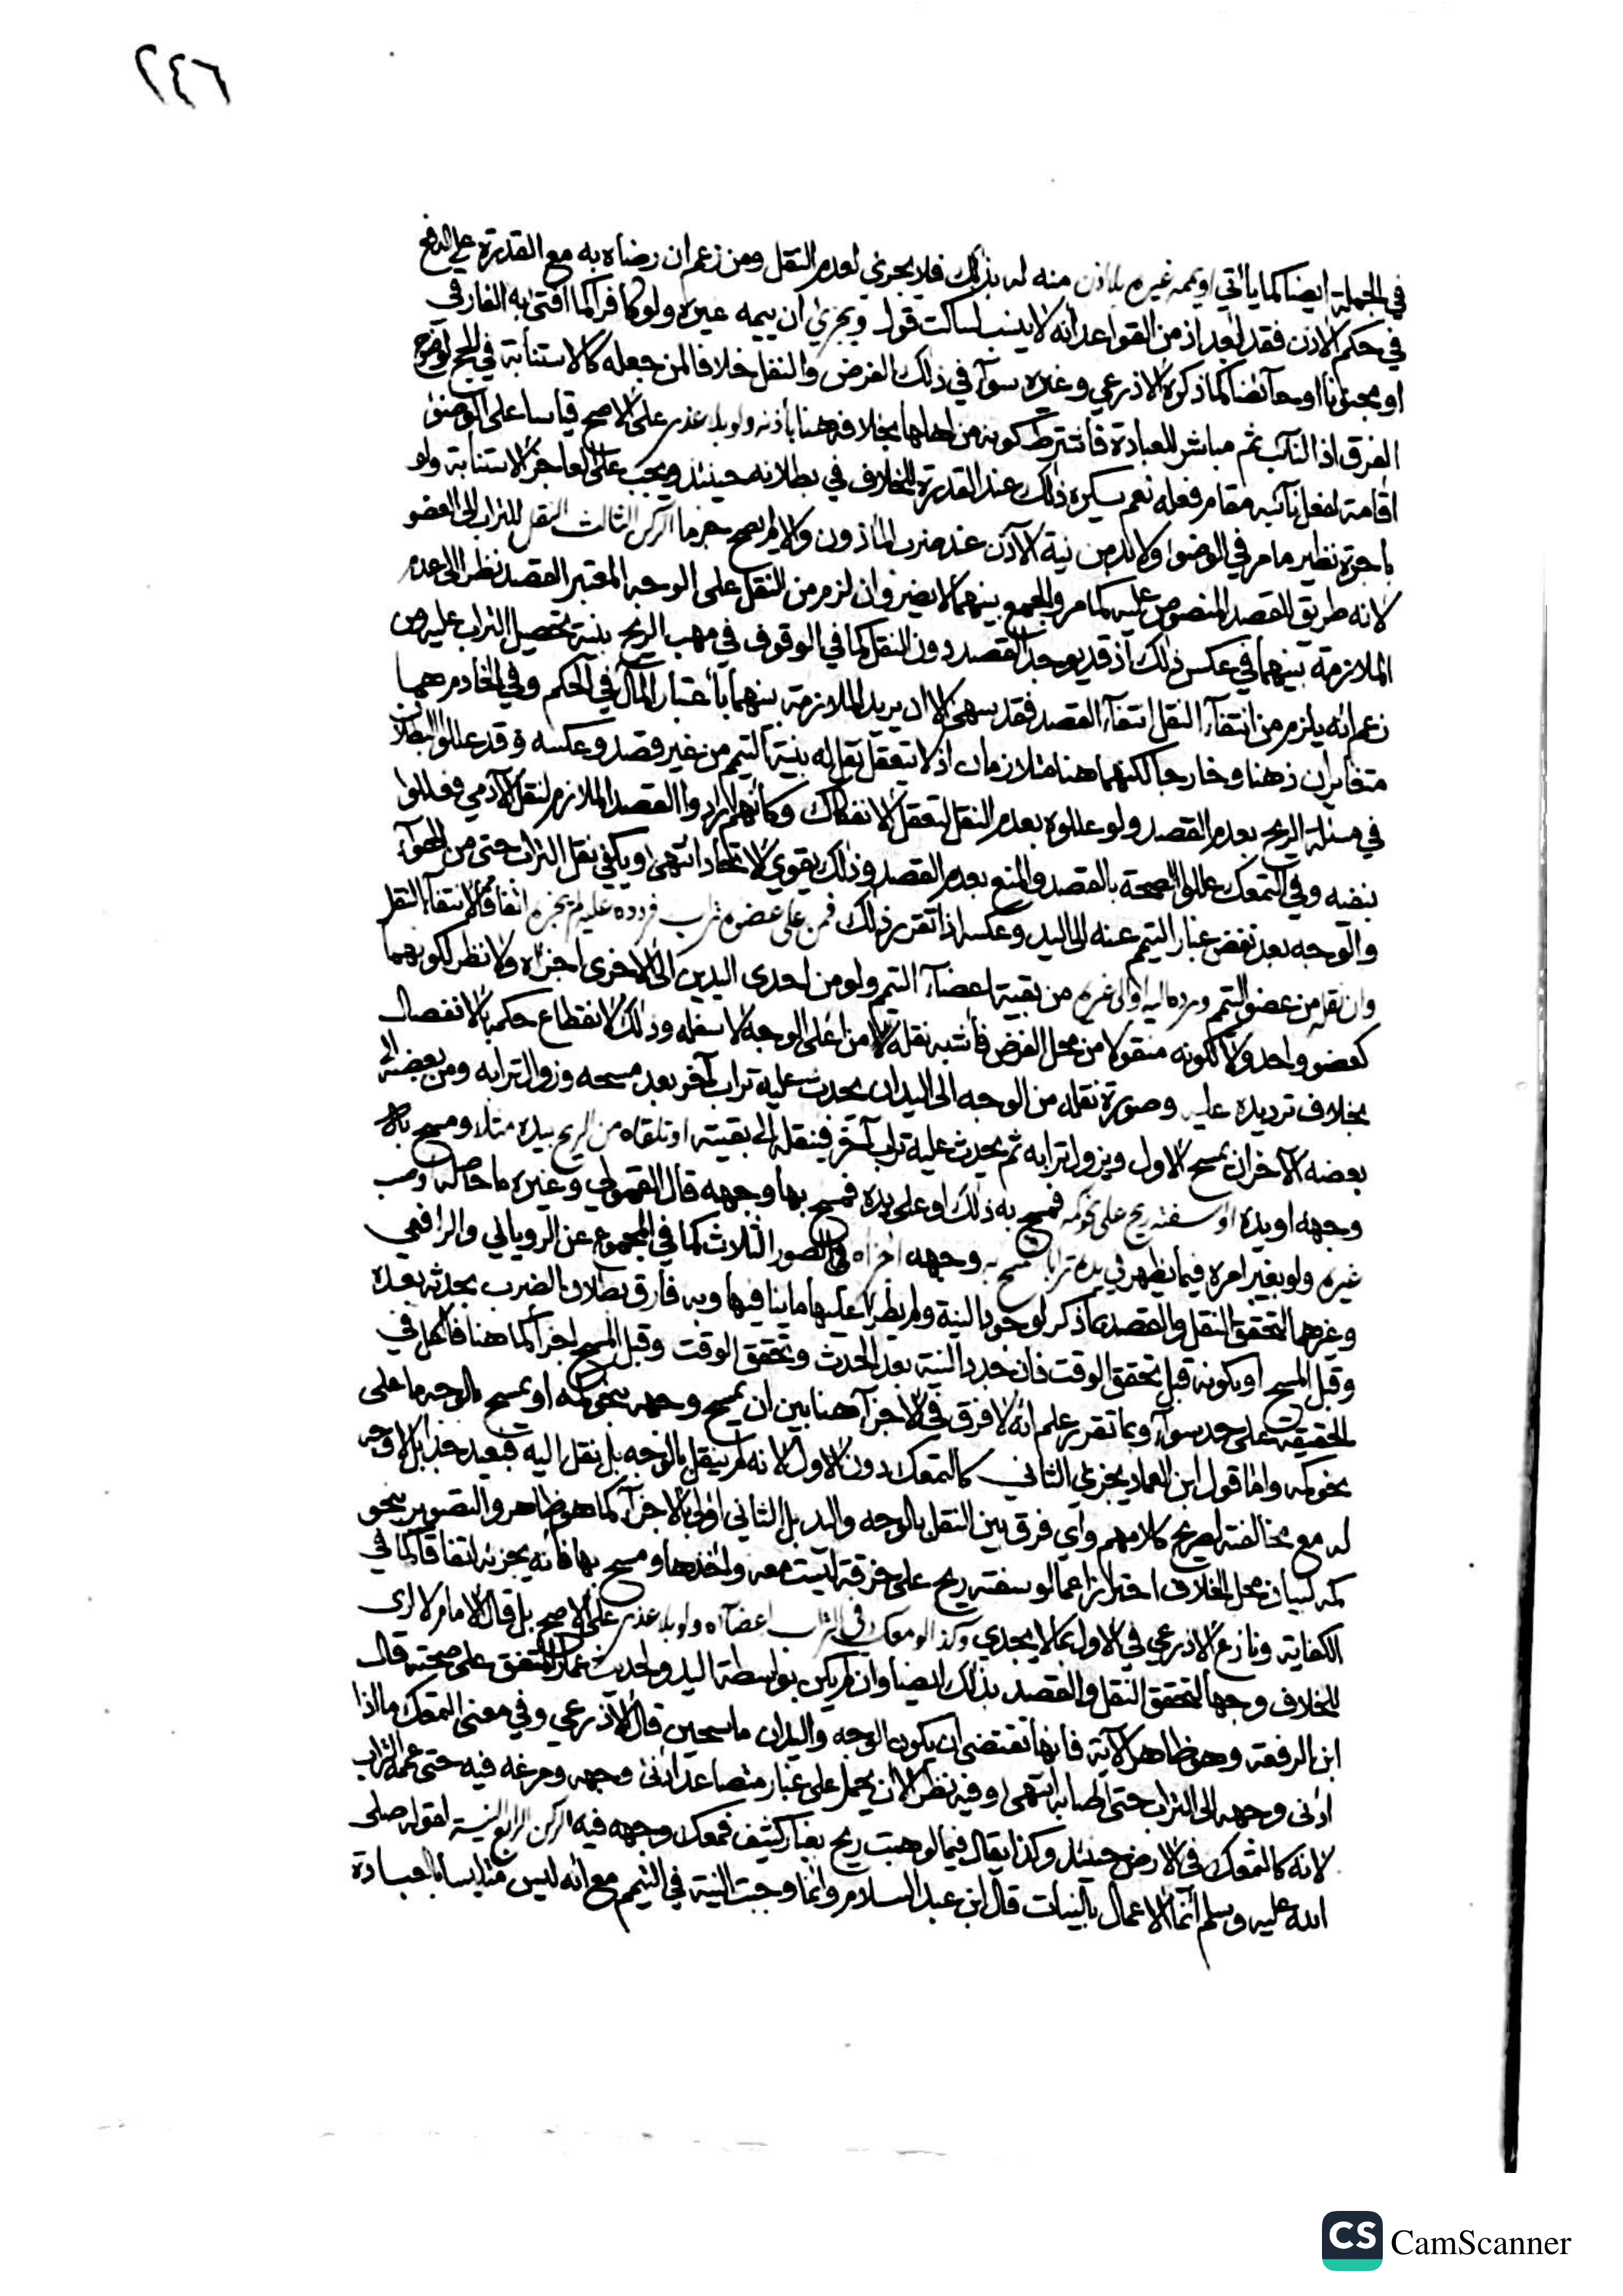 ٢٤٦
في الجملة ايضا كما يأتي او يممه غيره بلا اذن منه له بذلك فلا يجزي لعدم النقل ومن زعم ان رضاه به مع القدرة علي الدفع
في حكم الاذن فقد ابعد اذ من القواعد انه لا ينسب لساكت قول ويجزي ان ييممه غيره ولو كافرا كما افتى به الفارقي
او مجنونا او حائضا كما ذكره الاذرعي وغيره سوآ في ذلك الفرض والنفل خلافا لمن جعله كالاستنابة في الحج لوضوح
الفرق اذ النآئب ثم مباشر للعبادة فاشترط كونه من اهلها بخلافه هنا باذنه ولو بلا عذر على الاصح قياسا على الوضوء
اقامة لفعل نآئبه مقام فعله نعم يكره ذلك عند القدرة للخلاف في بطلانه حينئذ ويجب على العاجز الاستنابة ولو
باجرة نظير ما مر في الوضوا ولا بد من نية الآذن عند ضرب الماذون والا لم يصح جزما الركن الثالث النقل للتراب الى العضو
لانه طريق القصد المنصوص عليه كما مر والجمع بينهما لا يضر وان لزم من النقل على الوجه المعتبر القصد نظرا الى عدم
الملازمة بينهما في عكس ذلك اذ قد يوجد القصد دون النقل كما في الوقوف في مهب الريح بنية تحصيل التراب عليه ومن
زعم انه يلزم من انتفآء النقل انتفآء القصد فقد سهى الا ان يريد الملازمة بينهما باعتبار المآل في الحكم وفي الخادم هما
متغايران ذهنا وخارجا لكنهما هنا متلازمان اذ لا يتعقل نقل له بنية التيمم من غير قصد وعكسه وقد عللوا البطلان
في مسئلة الريح بعدم القصد ولو عللوه بعدم النقل لتعقل الانفكاك وكأنهم ارادوا القصد الملازم لنقل الآدمي فعللوا
بنفيه وفي التمعك عللوا الصحة بالقصد والمنع بعدم القصد وذلك يقوي الاتحاد انتهى ويكفي نقل التراب حتى من الهوآء
والوجه بعد نفض غبار التيمم عنه الى اليد وعكسه اذا تقرر ذلك فمن على عضوه تراب فردده عليه لم يجزه اتفاقا لانتفآء النقل
وان نقله من عضو التيمم ورده اليه او الى غيره من بقية اعضآء التيمم ولو من احدى اليدين الى الاخرى اجزاه ولا نظر لكونهما
كعضو واحد ولا لكونه منقولا من محل الفرض فأشبه نقله من اعلى الوجه لاسفله وذلك لانقطاع حكمه بالانفصال
بخلاف ترديده عليه وصورة نقله من الوجه الى اليد ان يحدث عليه تراب آخر بعد مسحه وزوال ترابه ومن بعضه الى
بعضه الآخر ان يمسح الاول ويزول ترابه ثم يحدث عليه تراب آخر فينقله الى بقيته او تلقاه من الريح بيده مثلا ومسح بها
وجهه او يده او سفته ريح على نحو كمه فمسح به ذلك او على يده فمسح بها وجهه قال القمولي وغيره ما حاصله او صب
غيره ولو بغير امره فيما يظهر في يده ترابا فمسح به وجهه اجزاه في الصور الثلاث كما في المجموع عن الروياني والرافعي
وغيرهما لتحقق النقل والقصد بما ذكر لوجود النية ولم يطرأ عليها ما ينافيها وبه فارق بطلان الضرب بحدثه بعده
وقبل المسح او بكونه قبل تحقق الوقت فان جدد النية بعد الحدث وتحقق الوقت وقبل المسح اجزأ كما هنا فالكل في
الحقيقة على حد سوآء وبما تقرر علم انه لا فرق في الاجزآ هنا بين ان يمسح وجهه بنحو كمه او يمسح بالوجه ما على
نحو كمه واما قول ابن العماد يجزي الثاني كالتمعك دون الاول لانه لم ينقل بالوجه بل نقل اليه فبعيد جدا بل لا وجه
له مع مخالفته لصريح كلامهم واي فرق بين النقل بالوجه واليد بل الثاني اولى بالاجزآ كما هو ظاهر والتصوير بنحو
كمه لبيان محل الخلاف احترازا عما لو سفته ريح على خرقة ليست معه واخذها ومسح بها فانه يجزيه اتفاقا كما في
الكفاية ونازع الاذرعي في الاول بما لا يجدي وكذا لو معك في التراب اعضآه ولو بلا عذر على الاصح بل قال الامام لا ارى
للخلاف وجها لتحقق النقل والقصد بذلك ايضا وان لم يكن بواسطة اليد ولحديث عمار المتفق على صحته قال
ابن الرفعة وهو ظاهر الآية فانها تقتضي ان يكون الوجه واليدان ماسحين قال الاذرعي وفي معنى التمعك ما اذا
ادنى وجهه الى التراب حتى اصابه انتهى وفيه نظر الا ان يحمل على غبار متصاعد ادنى وجهه ومرغه فيه حتى عمه التراب
لانه كالتمعك في الارض حينئذ وكذا يقال فيما لو هبت ريح بغبار كثيف فمعك وجهه فيه الركن الرابع النية لقوله صلى
الله عليه وسلم انما الاعمال بالنيات قال ابن عبد السلام وانما وجبت النية في التيمم مع انه ليس متلبسا بالعبادة
CS CamScanner